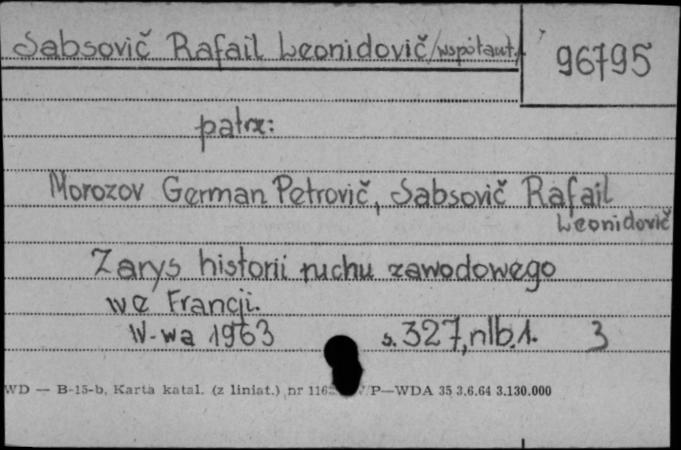 Sabsovič Rafail Leonidovič /współaut./
96795
patrz:
Morozov German Petrovič, Sabsovič Rafail
Leonidovič
Zarys historii ruchu zawodowego
we Francji.
W-wa 1963 s. 327, nlb. 1. 3
WD — B-15-b, Karta katal. (z liniat.) nr 116 P—WDA 35 3.6.64 3.130.000